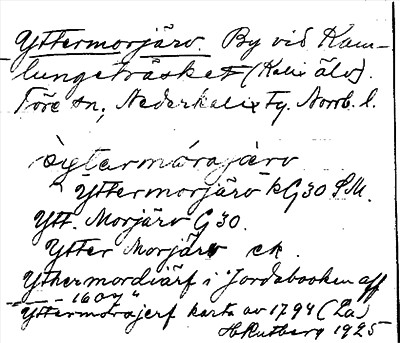 Yttermorjärv. By vid Kam-
lungeträsket (Kalix älv).
Töre sn, Nederkalix Tg. Norrb. l.
ỳtermórajærv
Yttermorjärv kG30 SM.
Ytt. Morjärv G30.
Ytter Morjärv ek.
Ythermordiärf i Jordabooken aff
1607"
Yttermorajerf karta av 1794 (La)
H Rutberg 1925